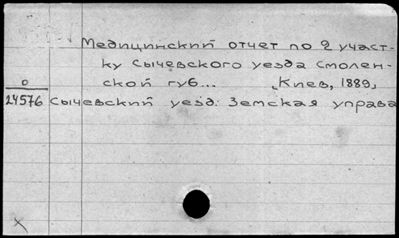 Медицинский отчет по 2 участ-
ку Сычевского уезда Смолен-
ской губ... „Киев, 1889„
о
24576 Сычевский уезд. Земская управа
х